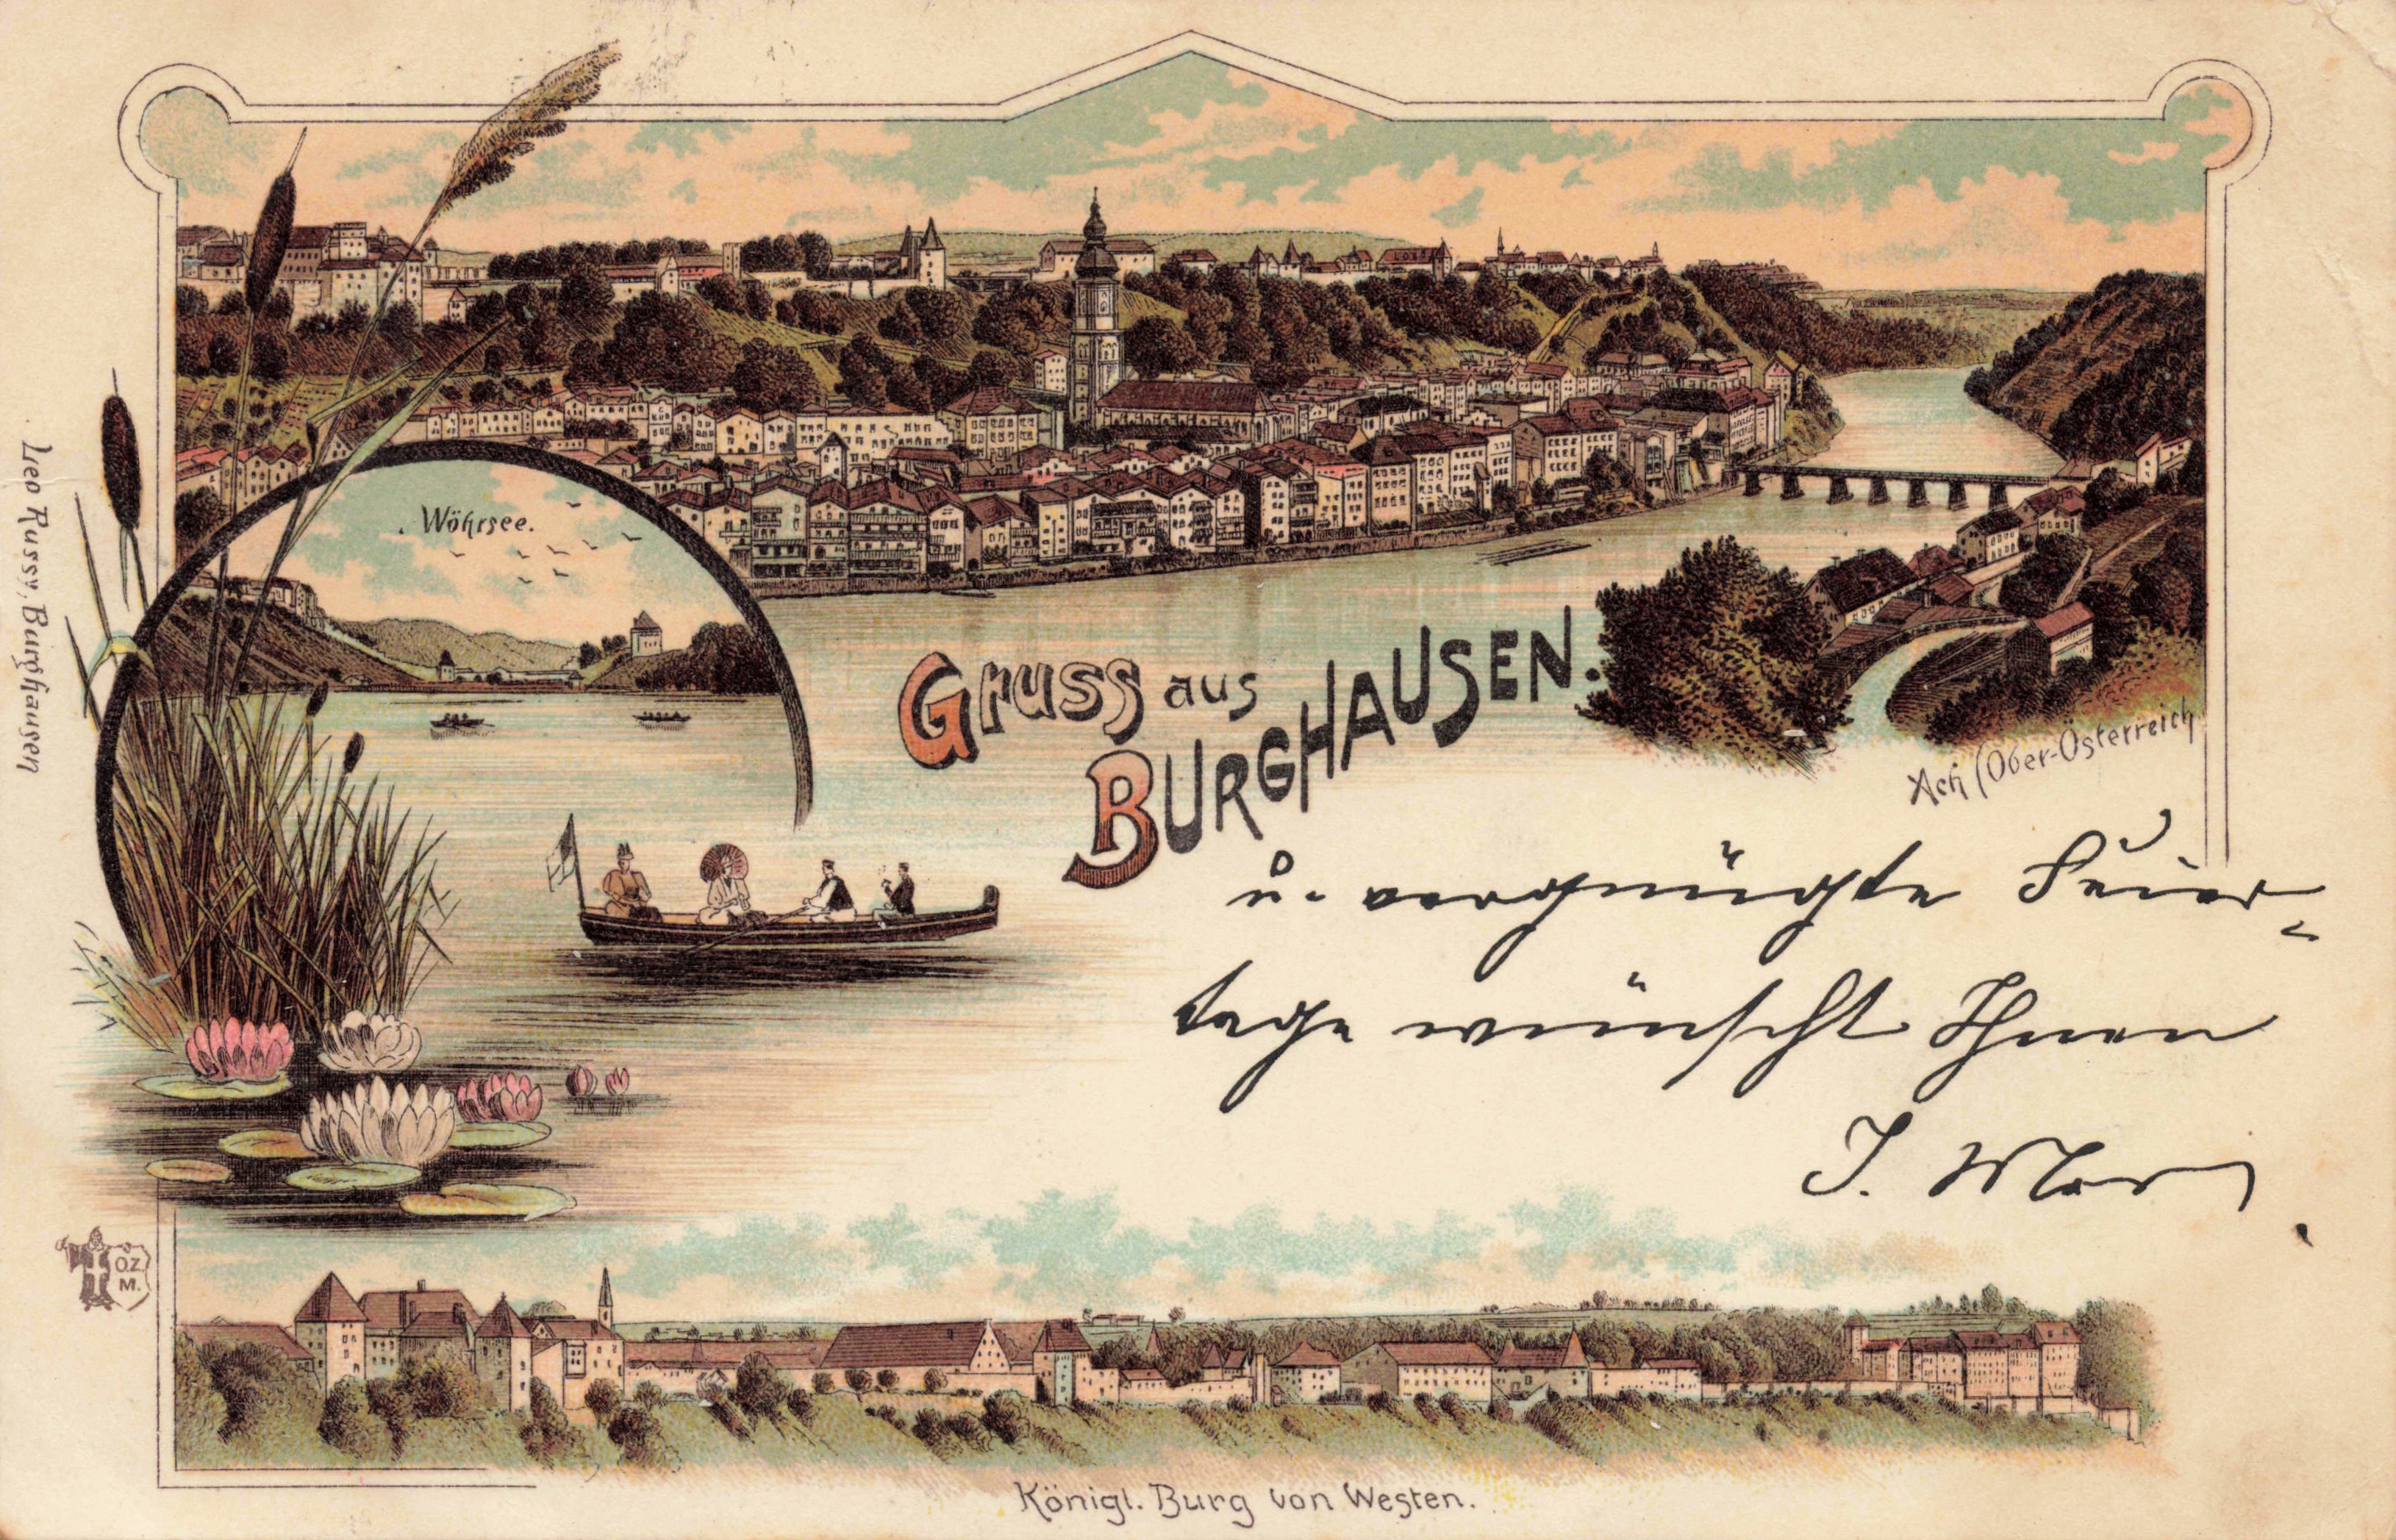 Wöhrsee.
Gruss aus
BURGHAUSEN.
Ach (Ober-Österreich
u. vergnügte Feier-
tage wünscht Ihnen
J.
Leo Russy, Burghausen
O.Z.
M.
Königl. Burg von Westen.